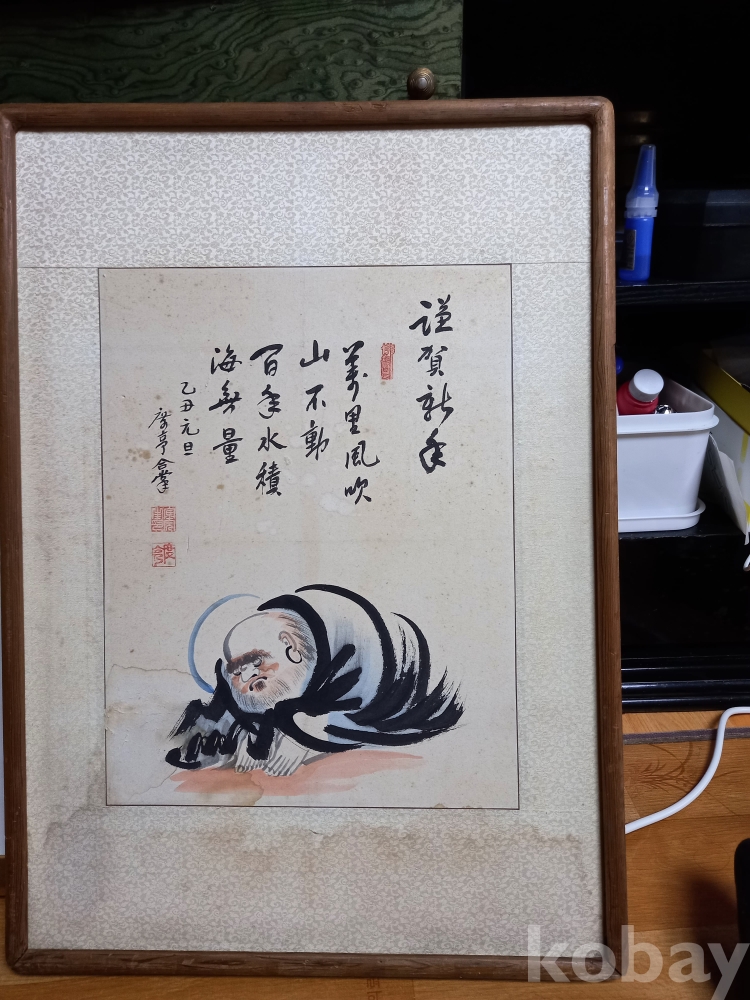 謹賀新年
萬里風吹
山不動
百年水積
海無量
乙丑元旦
亭合掌
kobay